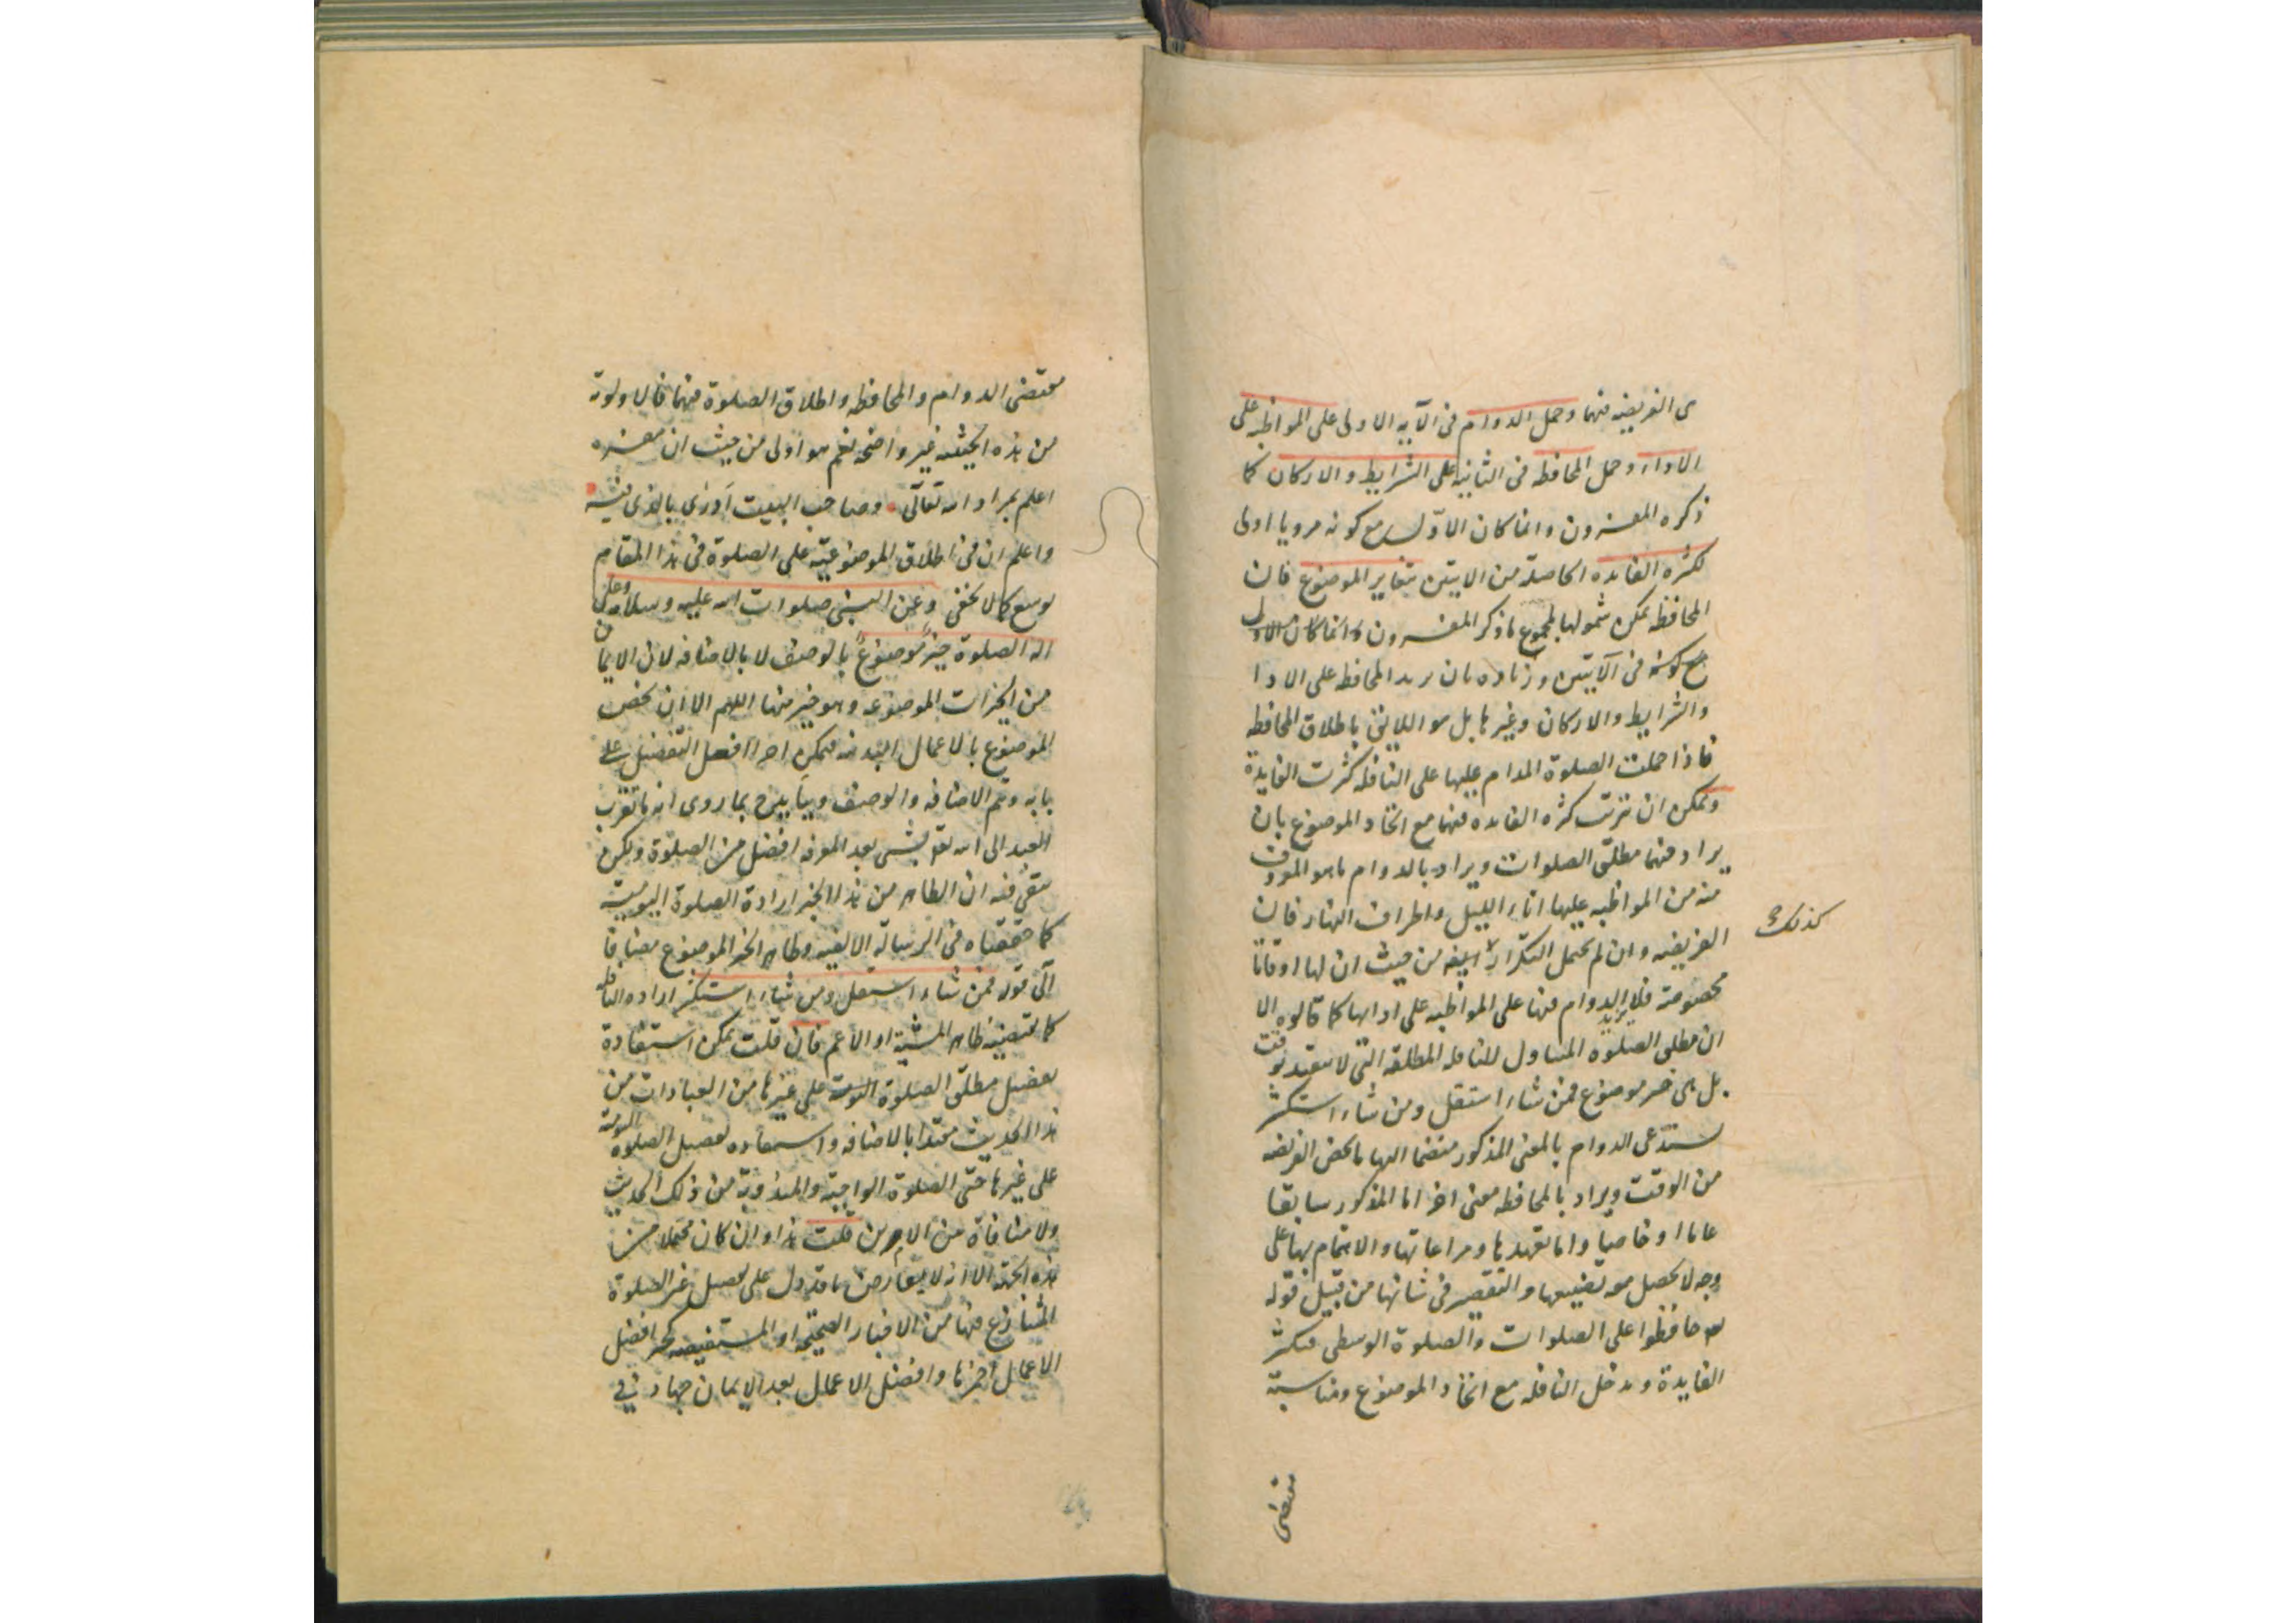 ى الفريضه فيهما وحمل الدوام فى الآيه الاولى على المواظبه على
الاداء وحمل المحافظه فى الثانيه على الشرايط والاركان كما
ذكره المفسرون وانما كان الاوّل مع كونه مرويا اولى
لكثره الفايده الحاصلة من الايتين بتغاير الموضوع فان
المحافظه يمكن شمولها لمجموع ما ذكر المفسرون وانما كان الاول
مع كونه فى الآيتين وزياده بان يريد المحافظه على الادا
والشرايط والاركان وغيرها بل هو اللايق باطلاق المحافظه
فاذا حملت الصلوة المدام عليها على النافله كثرت الفايدة
ويمكن ان يترتب كثره الفايده فيهما مع اتحاد الموضوع بان
يراد فيهما مطلق الصلوات ويراد بالدوام ما هو المعروف
منه من المواظبه عليها اناء الليل واطراف النهار فان
كذلك
الفريضه وان لم يحمل التكرار ايضه من حيث ان لها اوقاتا
مخصوصة فلا يريد الدوام فيها على المواظبه على ادايها كما قالوه الا
ان مطلق الصلوة المتناول للنافله المطلقه التى لا يتقيد بوقت
بل هى خير موضوع فمن شاء استقل ومن شاء استكثر
يستدعى الدوام بالمعنى المذكور منضما اليها ما يخص الفريضه
من الوقت ويراد بالمحافظه معنى اخر اما المذكور سابقا
عاما او خاصا واما تعهدها ومراعاتها والاهتمام بها على
وجه لا يحصل معه تضييعها والتقصير فى شانها من قبيل قوله
تع حافظوا على الصلوات والصلوة الوسطى فيكثر
الفايدة ويدخل النافله مع اتحاد الموضوع ومناسبة
مقتضى
مقتضى الدوام والمحافظه واطلاق الصلوة فيهما فالاولوية
من هذه الحيثيه غير واضحه نعم هو اولى من حيث ان مفسره
اعلم بمراد الله تعالى وصاحب البيت ادرى بالذى فيه
واعلم ان فى اطلاق الموضوعيّه على الصلوة فى هذا المقام
توسع كما لا يخفى وعن النبى صلوات الله عليه وسلامه وعلى
اله الصلوة خيرٌ موضوعٌ بالوصف لا بالاضافه لان الايمان
من الخيرات الموضوعه وهو خير منها اللهم الا ان يخص
الموضوع بالاعمال البدنيه فيمكن اجراء افعل التفضيل على
بابه وتم الاضافه والوصف ويتايد ح بما روى انه ما تقرب
العبد الى الله تع بشى بعد المعرفه افضل من الصلوة ولكن
بقى فيه ان الظاهر من هذا الخبر ارادة الصلوة اليومية
كما حققناه فى الرسالة الالفيه وظاهر الخبر الموضوع مضافا
الى قوله فمن شاء استقل ومن شاء استكثر اراده النافله
كما يقتضيه ظاهر المشية او الاعم فان قلت يمكن استفادة
تفضيل مطلق الصلوة اليومية على غيرها من العبادات من
هذا الحديث مقيدا بالاضافه واستفاده تفضيل الصلوة اليومية
على غيرها حتى الصلوة الواجبة والمندوبة من ذلك الحديث
ولا منافاة بين الامرين قلت هذا وان كان محتملا من
هذه الجهة الا انه لا يعارض ما قد دل على تفضيل غير الصلوة
المتنازع فيها من الاخبار الصحيحه او المستفيضه كخبر افضل
الاعمال احمزها وافضل الاعمال بعد الايمان جهاد فى